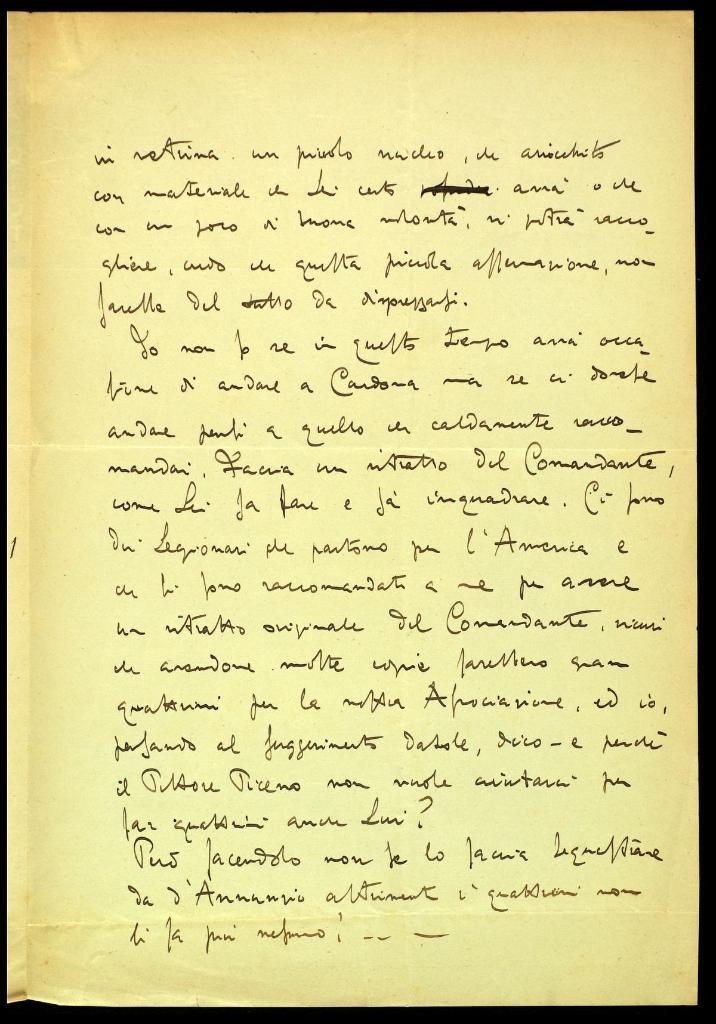 in vetrina un piccolo nucleo, che arricchito
con materiale che Lei certo avrà o che
con un poco di buona volontà, si potrà racco-
gliere, credo che questa piccola affermazione, non
sarebbe del tutto da disprezzarsi.
Io non so se in questo tempo avrà occa-
sione di andare a Cardona ma se ci dovesse
andare pensi a quello che caldamente racco-
mandai. Faccia un ritratto del Comandante,
come Lei sa fare e sa inquadrare. Ci sono
dei Legionari che partono per l'America e
che si sono raccomandati a me per avere
un ritratto originale del Comandante, sicuri
che avendone molte copie farebbero gran
quattrini per la nostra Associazione, ed io,
pensando al suggerimento datole, dico - e perché
il Pittore Piceno non vuole aiutarci per
far quattrini anche Lui?
Però facendolo non se lo faccia sequestrare
da d'Annunzio altrimenti i quattrini non
li fa più nessuno! -- —